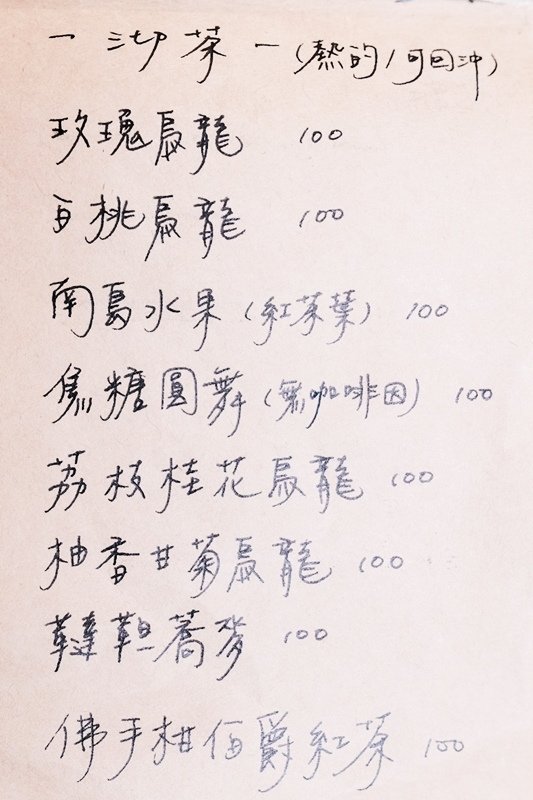 －沏茶－(熱的/可回沖)
玫瑰烏龍 100
白桃烏龍 100
南島水果(紅茶葉) 100
焦糖圓舞(無咖啡因) 100
荔枝桂花烏龍 100
柚香甘菊烏龍 100
韃靼蕎麥 100
佛手柑伯爵紅茶 100